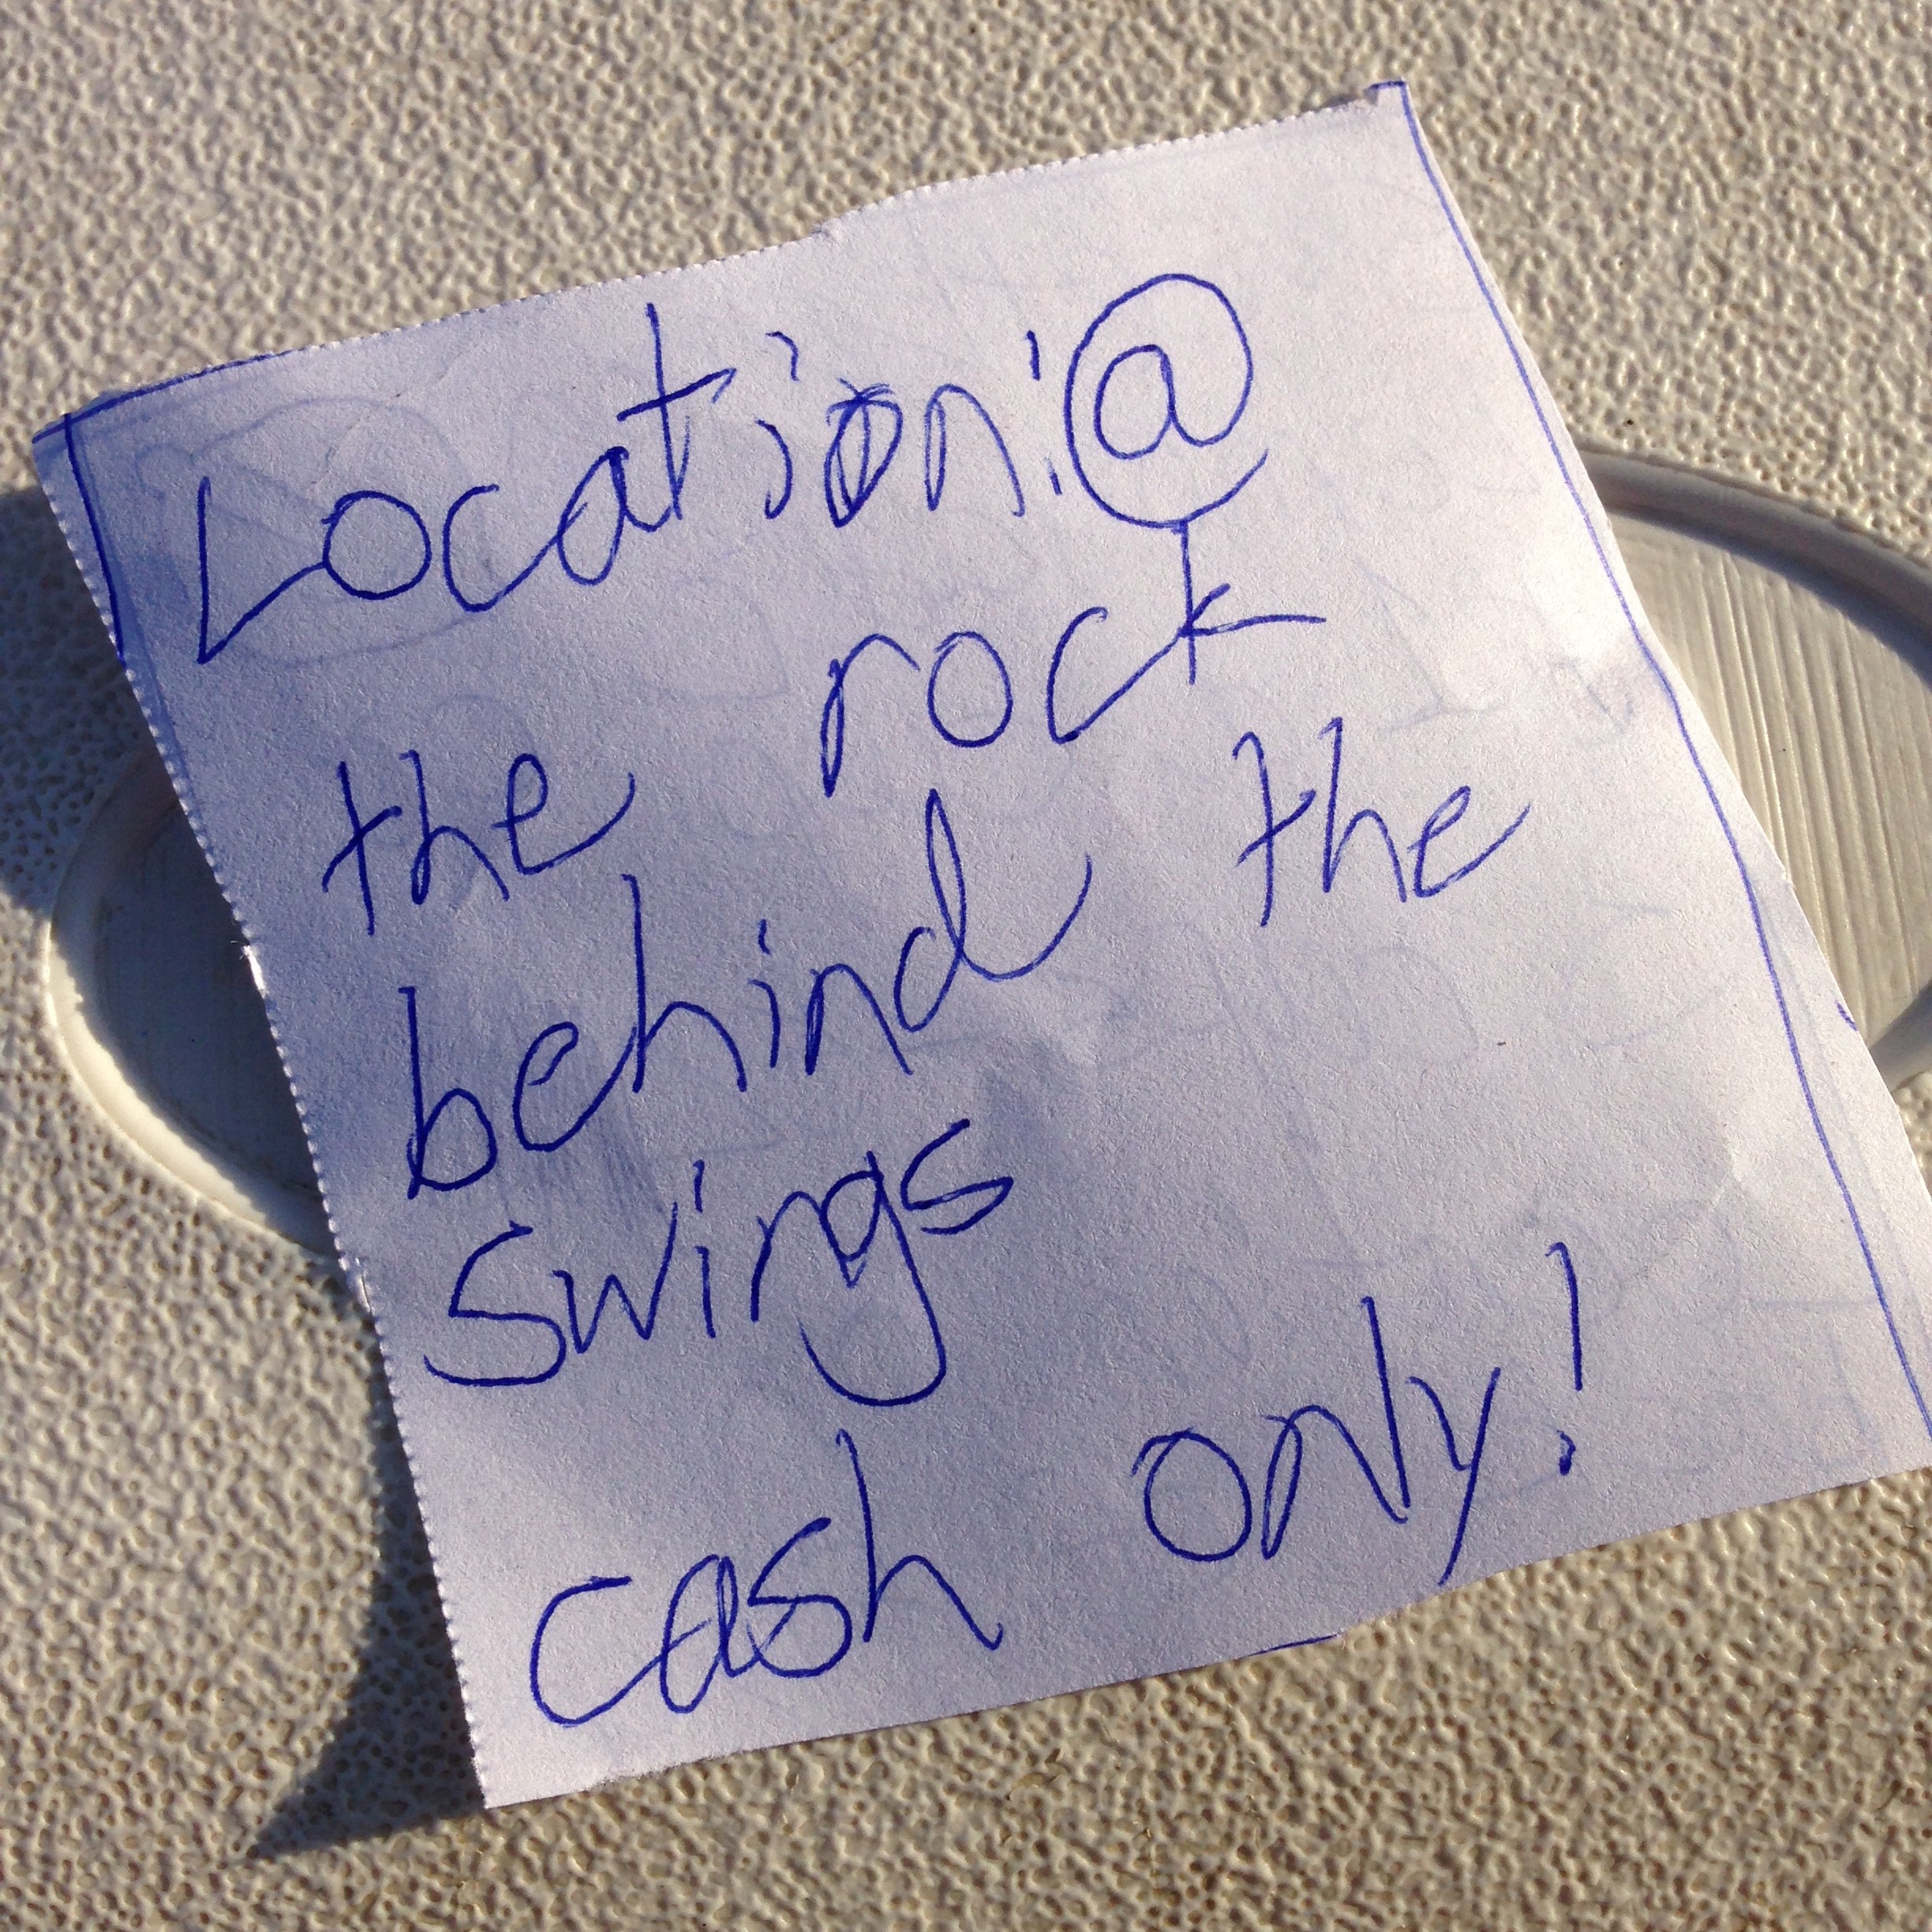 Location:@
the rock
behind the
swings
cash only!